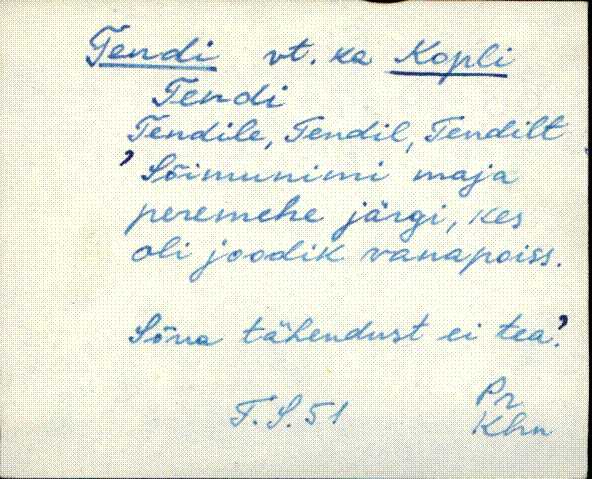 Tendi vt. ka Kopli
Tendi
Tendile, Tendil, Tendilt
'Sõimunimi maja
peremehe järgi, kes
oli joodik vanapoiss.
Sõna tähendust ei tea.'
T.S. 51
Pr
Khn